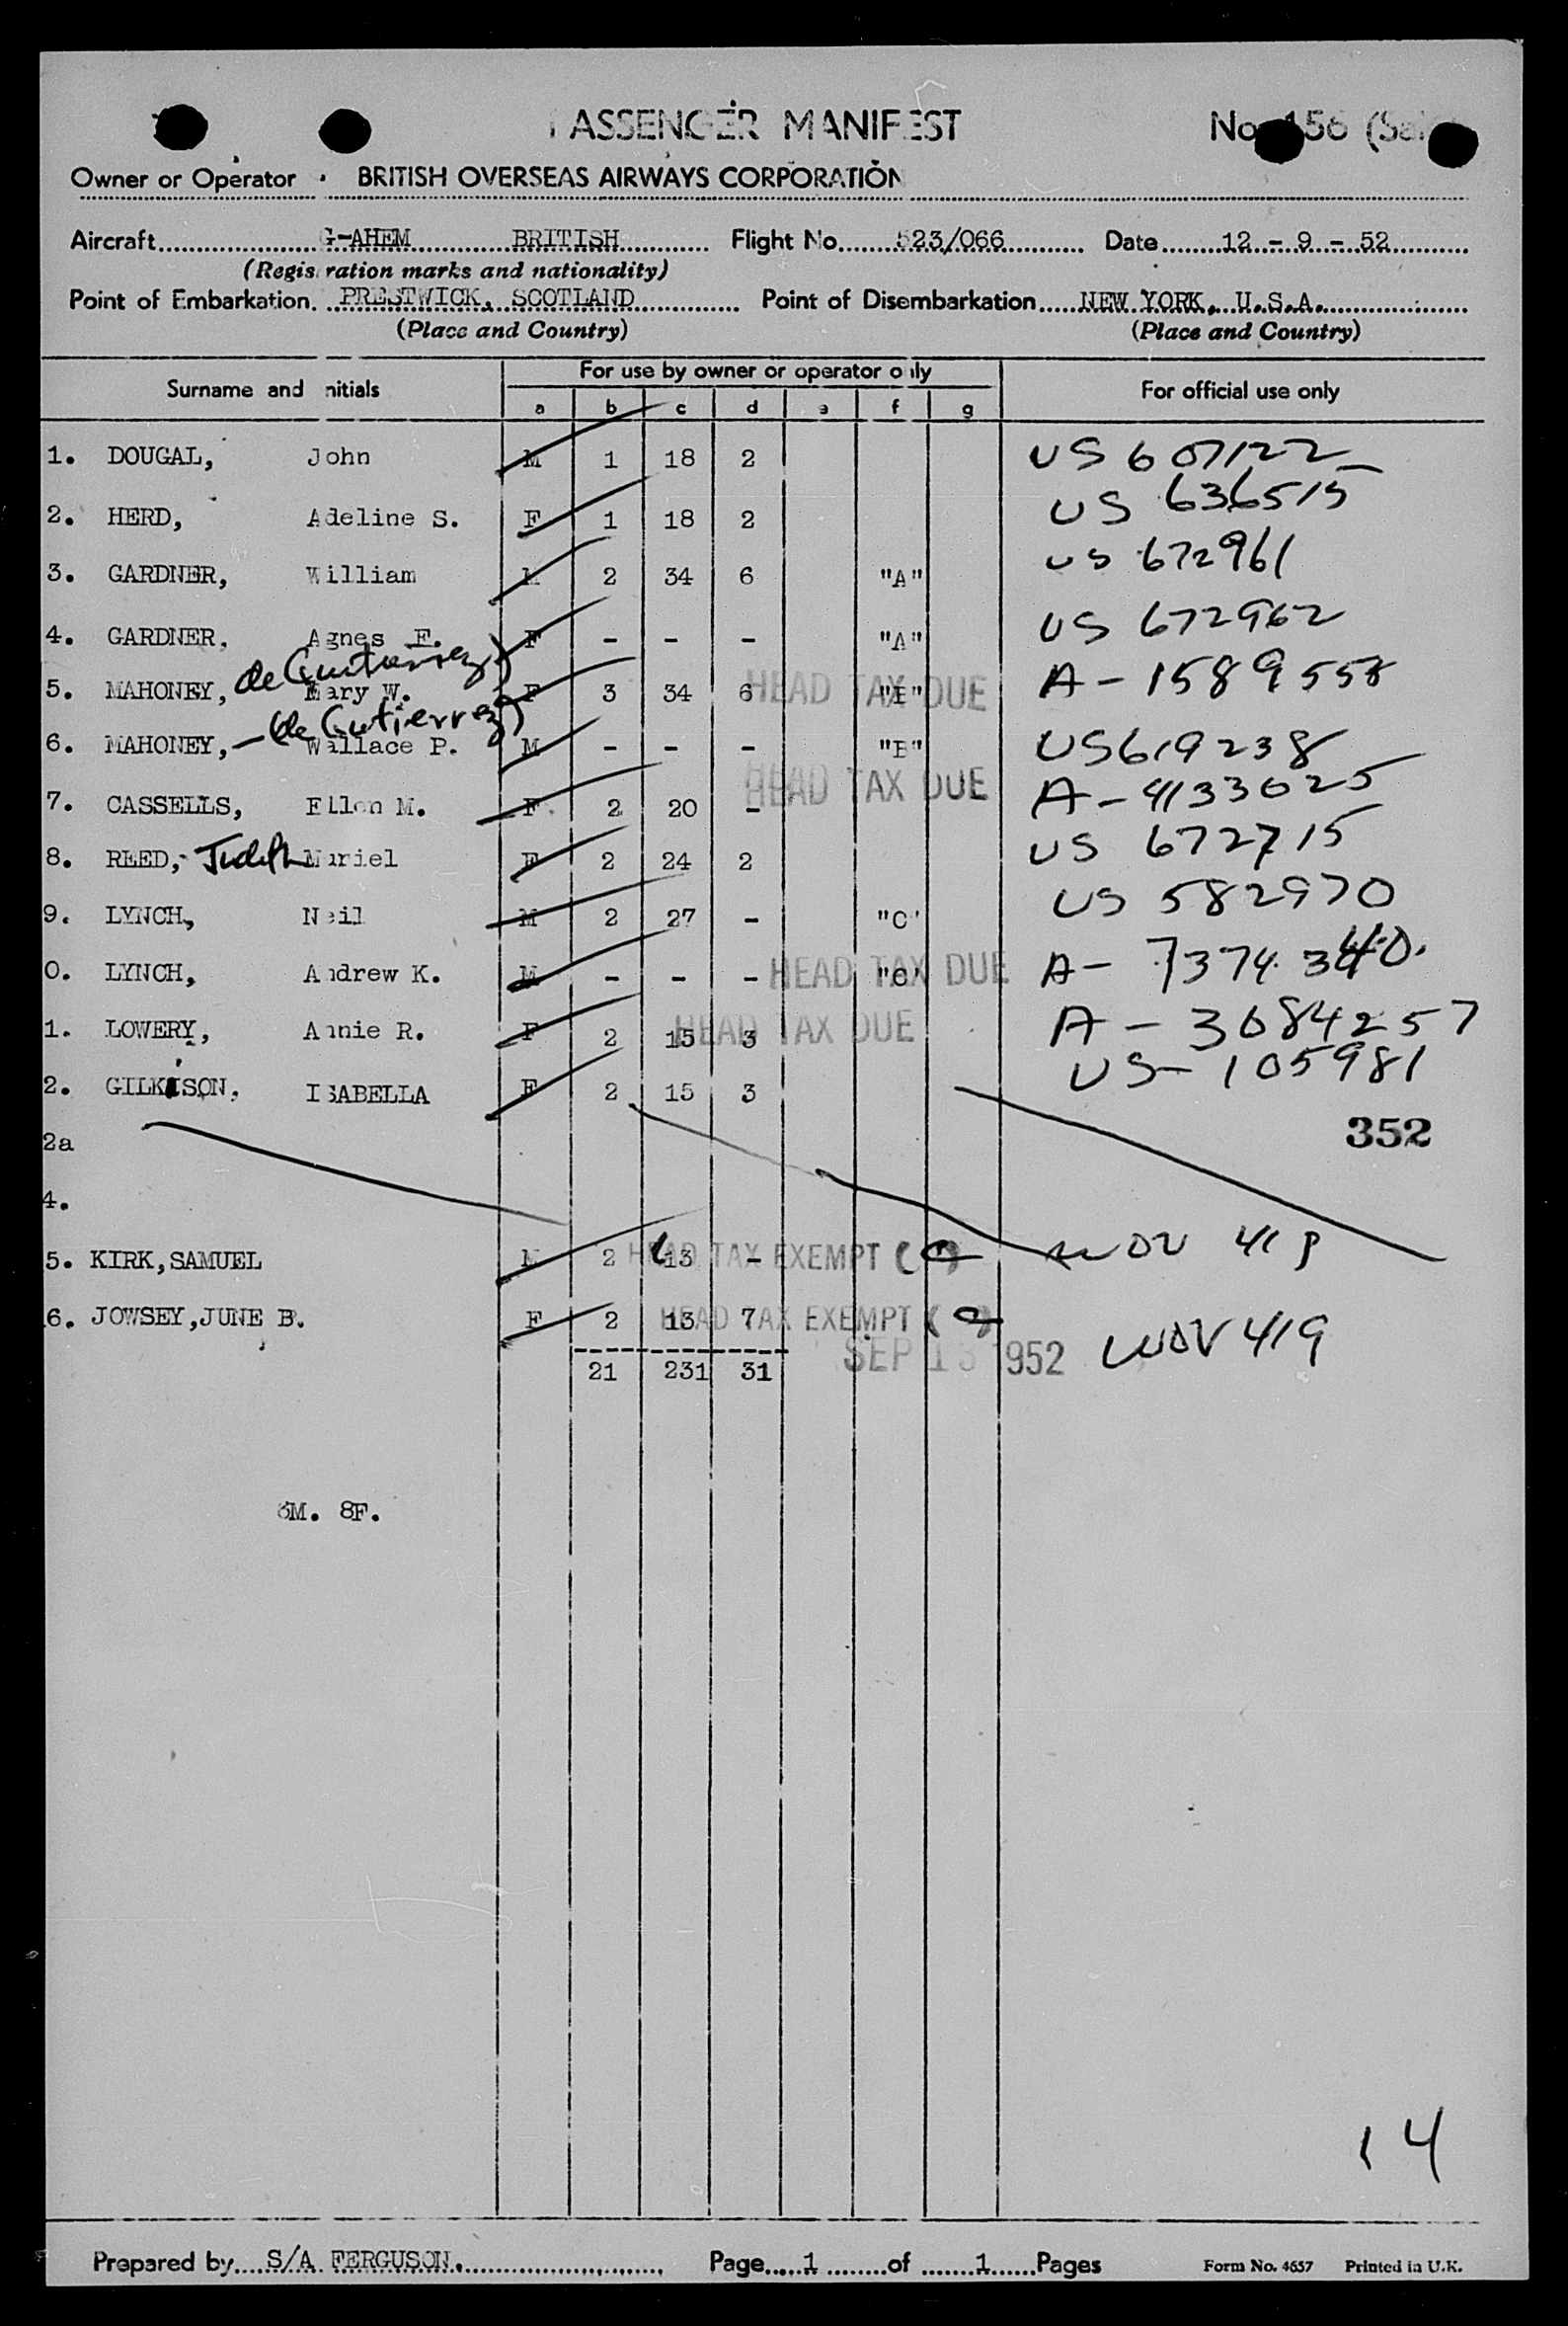 PASSENGER MANIFEST No. 156
Owner or Operator . BRITISH OVERSEAS AIRWAYS CORPORATION
Aircraft G-AHEM BRITISH Flight No. 523/066 Date 12 - 9 - 52
(Registration marks and nationality)
Point of Embarkation. PRESTWICK, SCOTLAND Point of Disembarkation NEW YORK, U.S.A.
(Place and Country) (Place and Country)
For use by owner or operator only
Surname and Initials For official use only
a b c d e f g
1. DOUGAL, John M 1 18 2 US 607122
2. HERD, Adeline S. F 1 18 2 US 636515
3. GARDNER, William M 2 34 6 "A" US 672961
4. GARDNER, Agnes E. F - - - "A" US 672962
de Gutierrez)
5. MAHONEY, Mary W. F 3 34 6 "B" HEAD TAX DUE A - 1589558
- (de Gutierrez)
6. MAHONEY, Wallace P. M - - - "B" US 619238
HEAD TAX DUE
7. CASSELLS, Ellen M. F 2 20 - A - 4133025
8. REED, Judith Muriel F 2 24 2 US 672715
9. LYNCH, Neil M 2 27 - "C" US 582970
0. LYNCH, Andrew K. M - - - "C" HEAD TAX DUE A - 7374340.
1. LOWERY, Annie R. F 2 15 3 HEAD TAX DUE A - 3084257
2. GILKISON, ISABELLA F 2 15 3 US - 105981
2a 352
4.
5. KIRK, SAMUEL M 2 13 - HEAD TAX EXEMPT ( ) WOV 419
6. JOWSEY, JUNE B. F 2 13 7 HEAD TAX EXEMPT ( ) WOV 419
SEP 13 1952
21 231 31
6M. 8F.
14
Prepared by S/A FERGUSON. Page 1 of 1 Pages Form No. 4657 Printed in U.K.